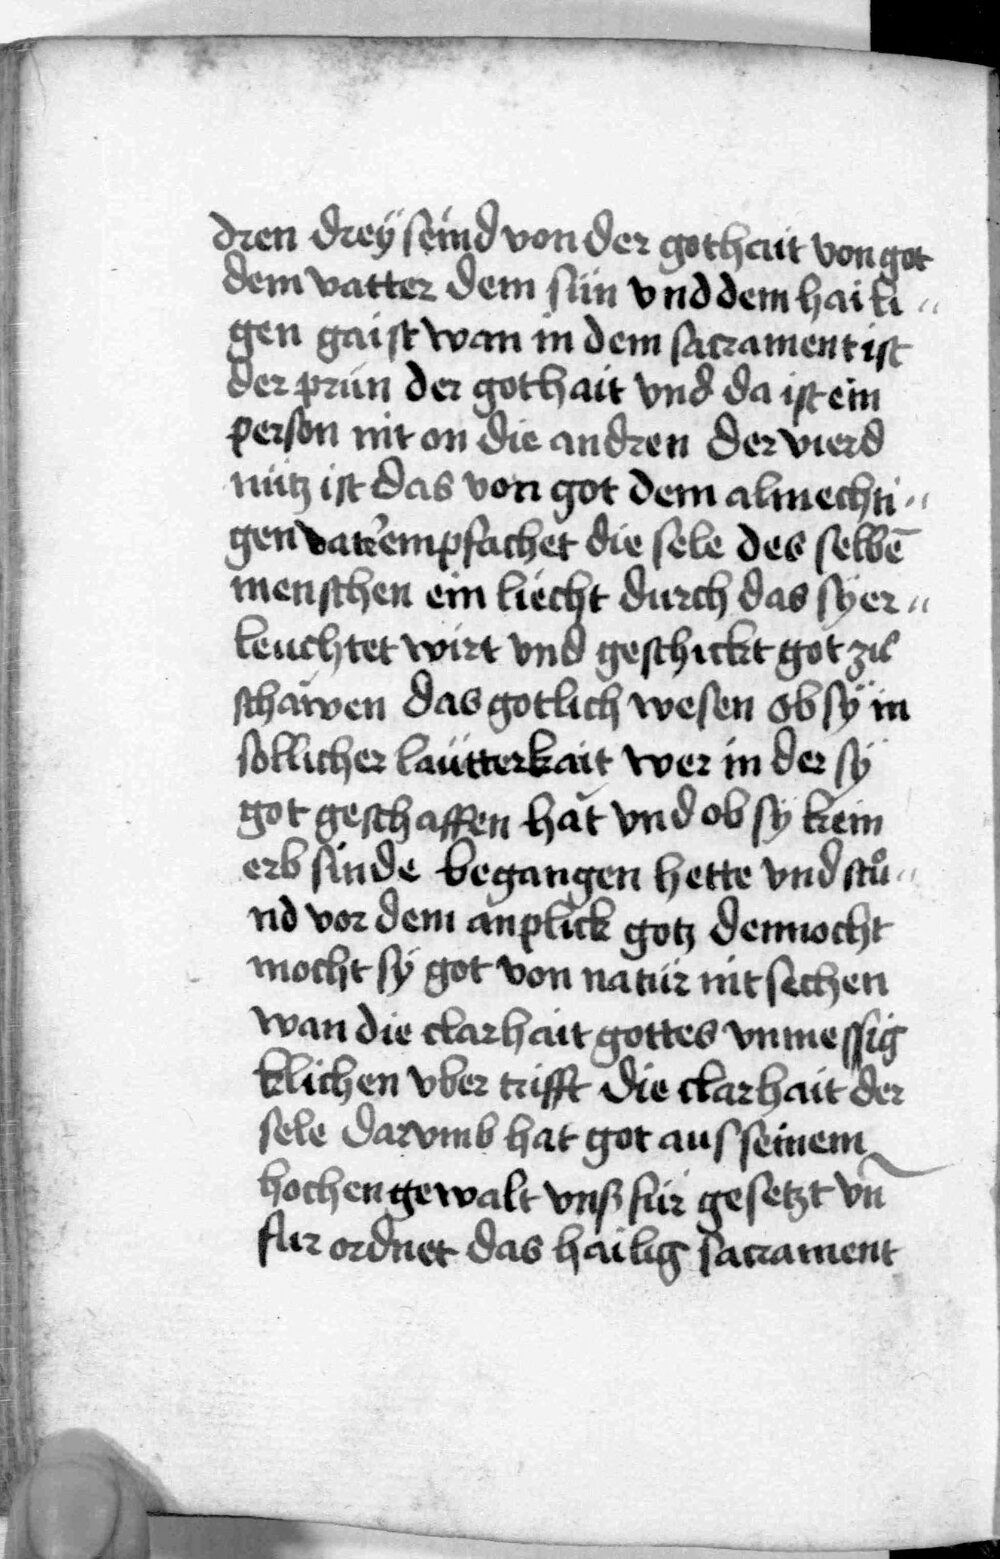 dren dreÿ seind von der gothait von got
dem vatter dem sün vnd dem haili„
gen gaist wan in dem sacrament ist
der prün der gothait vnd da ist ein
person nit on die andren Der vierd
nütz ist das von got dem almechti„
gen vat̾ empfachet die sele des selbē
menschen ein liecht durch das sÿ er„
leuchtet wirt vnd geschickt got zů
schäwen das gotlich wesen ob sÿ in
sollicher laütterkait wer in der sÿ
got geschaffen hat vnd ob sÿ kein
erb sinde begangen hette vnd stů„
nd vor dem anplick gotz dennocht
mocht sÿ got von natür nit sechen
wan die clarhait gottes vnmessig
klichen vber trifft die clarhait der
sele darvmb hat got aus seinem
hochen gewalt vnß für gesetzt vn̄
fur ordnet das hailig sacrament